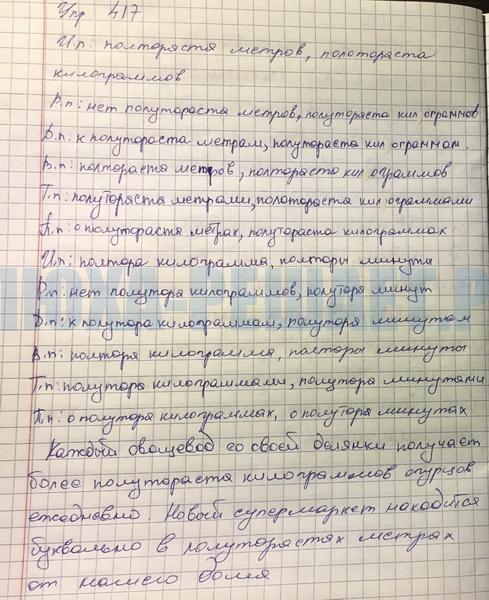 Упр 417
И.п: полтораста метров, полотораста
килограммов
Р.п: нет полутораста метров, полутораста кил ограммов
Д.п: к полутораста метрам, полутораста кил ограммам.
В.п: полтораста метров, полтораста кил ограммов
Т.п: полутораста метрами, полотораста кил ограммами
П.п: о полутораста метрах, полутораста килограммах
И.п: полтора килограмма, полторы минуты
Р.п: нет полутора килограммов, полутора минут
Д.п: к полутора килограммам, полутора минутам
В.п: полтора килограмма, полторы минуты
Т.п: полутора килограммами, полутора минутами
П.п: о полутора килограммах, о полутора минутах
Каждый овощевод со своей делянки получает
более полутораста килограммов огурцов
ежедневно. Новый супермаркет находится
буквально в полуторастах метрах
от нашего дома